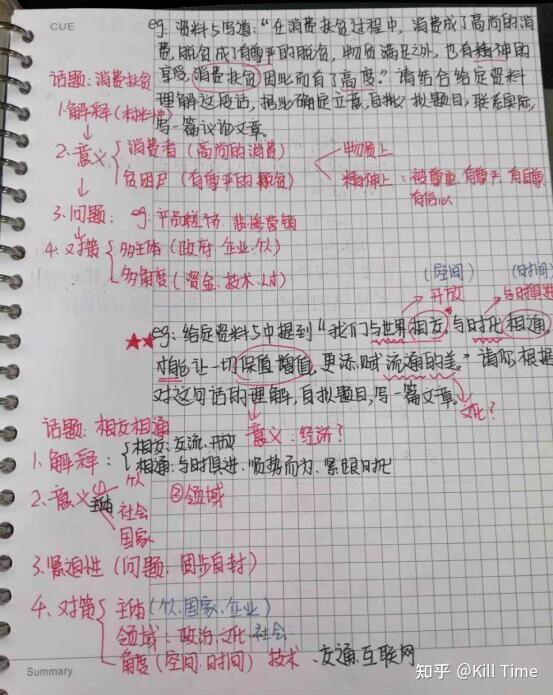 CUE
eg: 资料5写道:“在消费扶贫过程中,消费成了高尚的消
费,脱贫成了有尊严的脱贫,物质满足之外,也有精神的
享受,消费扶贫因此而有了高度。”请结合给定资料
理解这段话,据此确定立意,自拟题目,联系实际,
写一篇议论文章。
话题:消费扶贫
1.解释(本材料中)
2.意义 消费者(高尚的消费)
贫困户(有尊严的脱贫)
物质上
精神上:被尊重.有尊严.有自尊.
有信心
3.问题:eg:平员 悲情营销
4.对策 多主体(政府.企业.个人)
多角度(资金.技术.人才)
(空间) (时间)
开放 与时俱进
★★eg:给定资料5中提到“我们与世界相交,与时代相通
才能让一切保值增值,更添赋流通的美。”请你根据
对这句话的理解,自拟题目,写一篇文章。
意义:经济? 文化?
话题:相交相通
1.解释: 相交:交流.开放
相通:与时俱进.顺势而为.紧跟时代
2.意义 ①主体 个人 ②领域
社会
国家
3.紧迫性(问题:固步自封)
4.对策 主体(个人.国家.企业)
领域:政治.文化.社会
角度(空间.时间) 技术.交通.互联网
Summary
知乎 @Kill Time